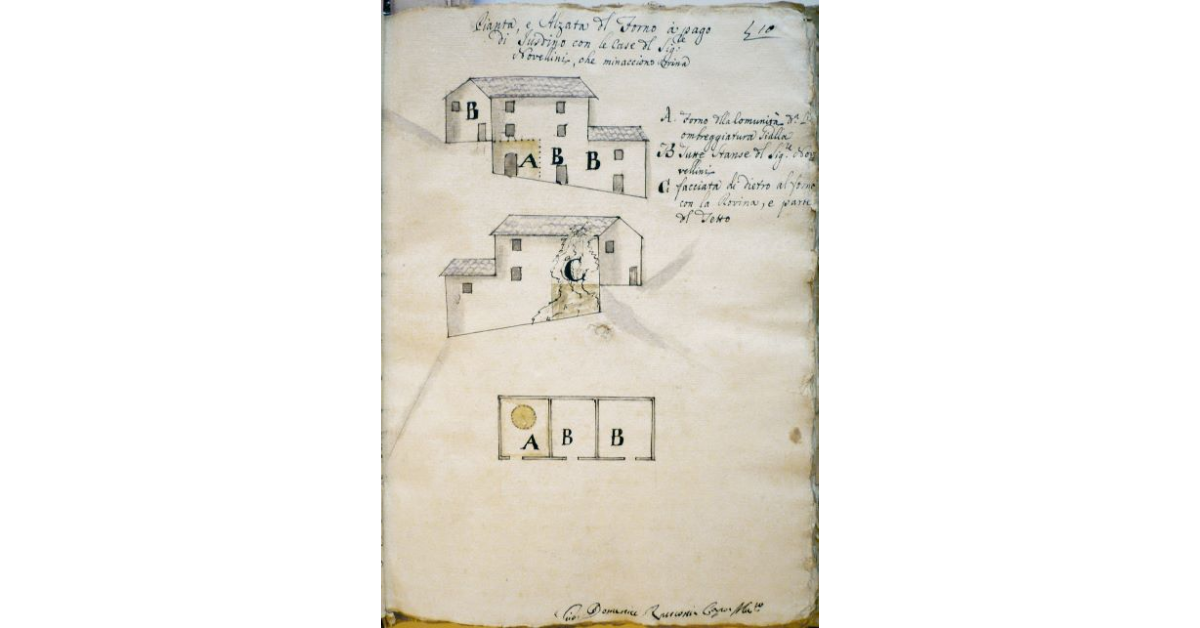 Pianta, e Alzata dl Forno à pago
di Justino con le Case dl Sig.
Novellini, che minacciono Rvina
B
A B B
A. Forno dlla Comunità
ombreggiatura Gialla
B Tutte Stanse dl Sig.
vellini
C facciata di dietro al forno
con la Rovina, e parte
dl Tetto
C
A B B
Domenico